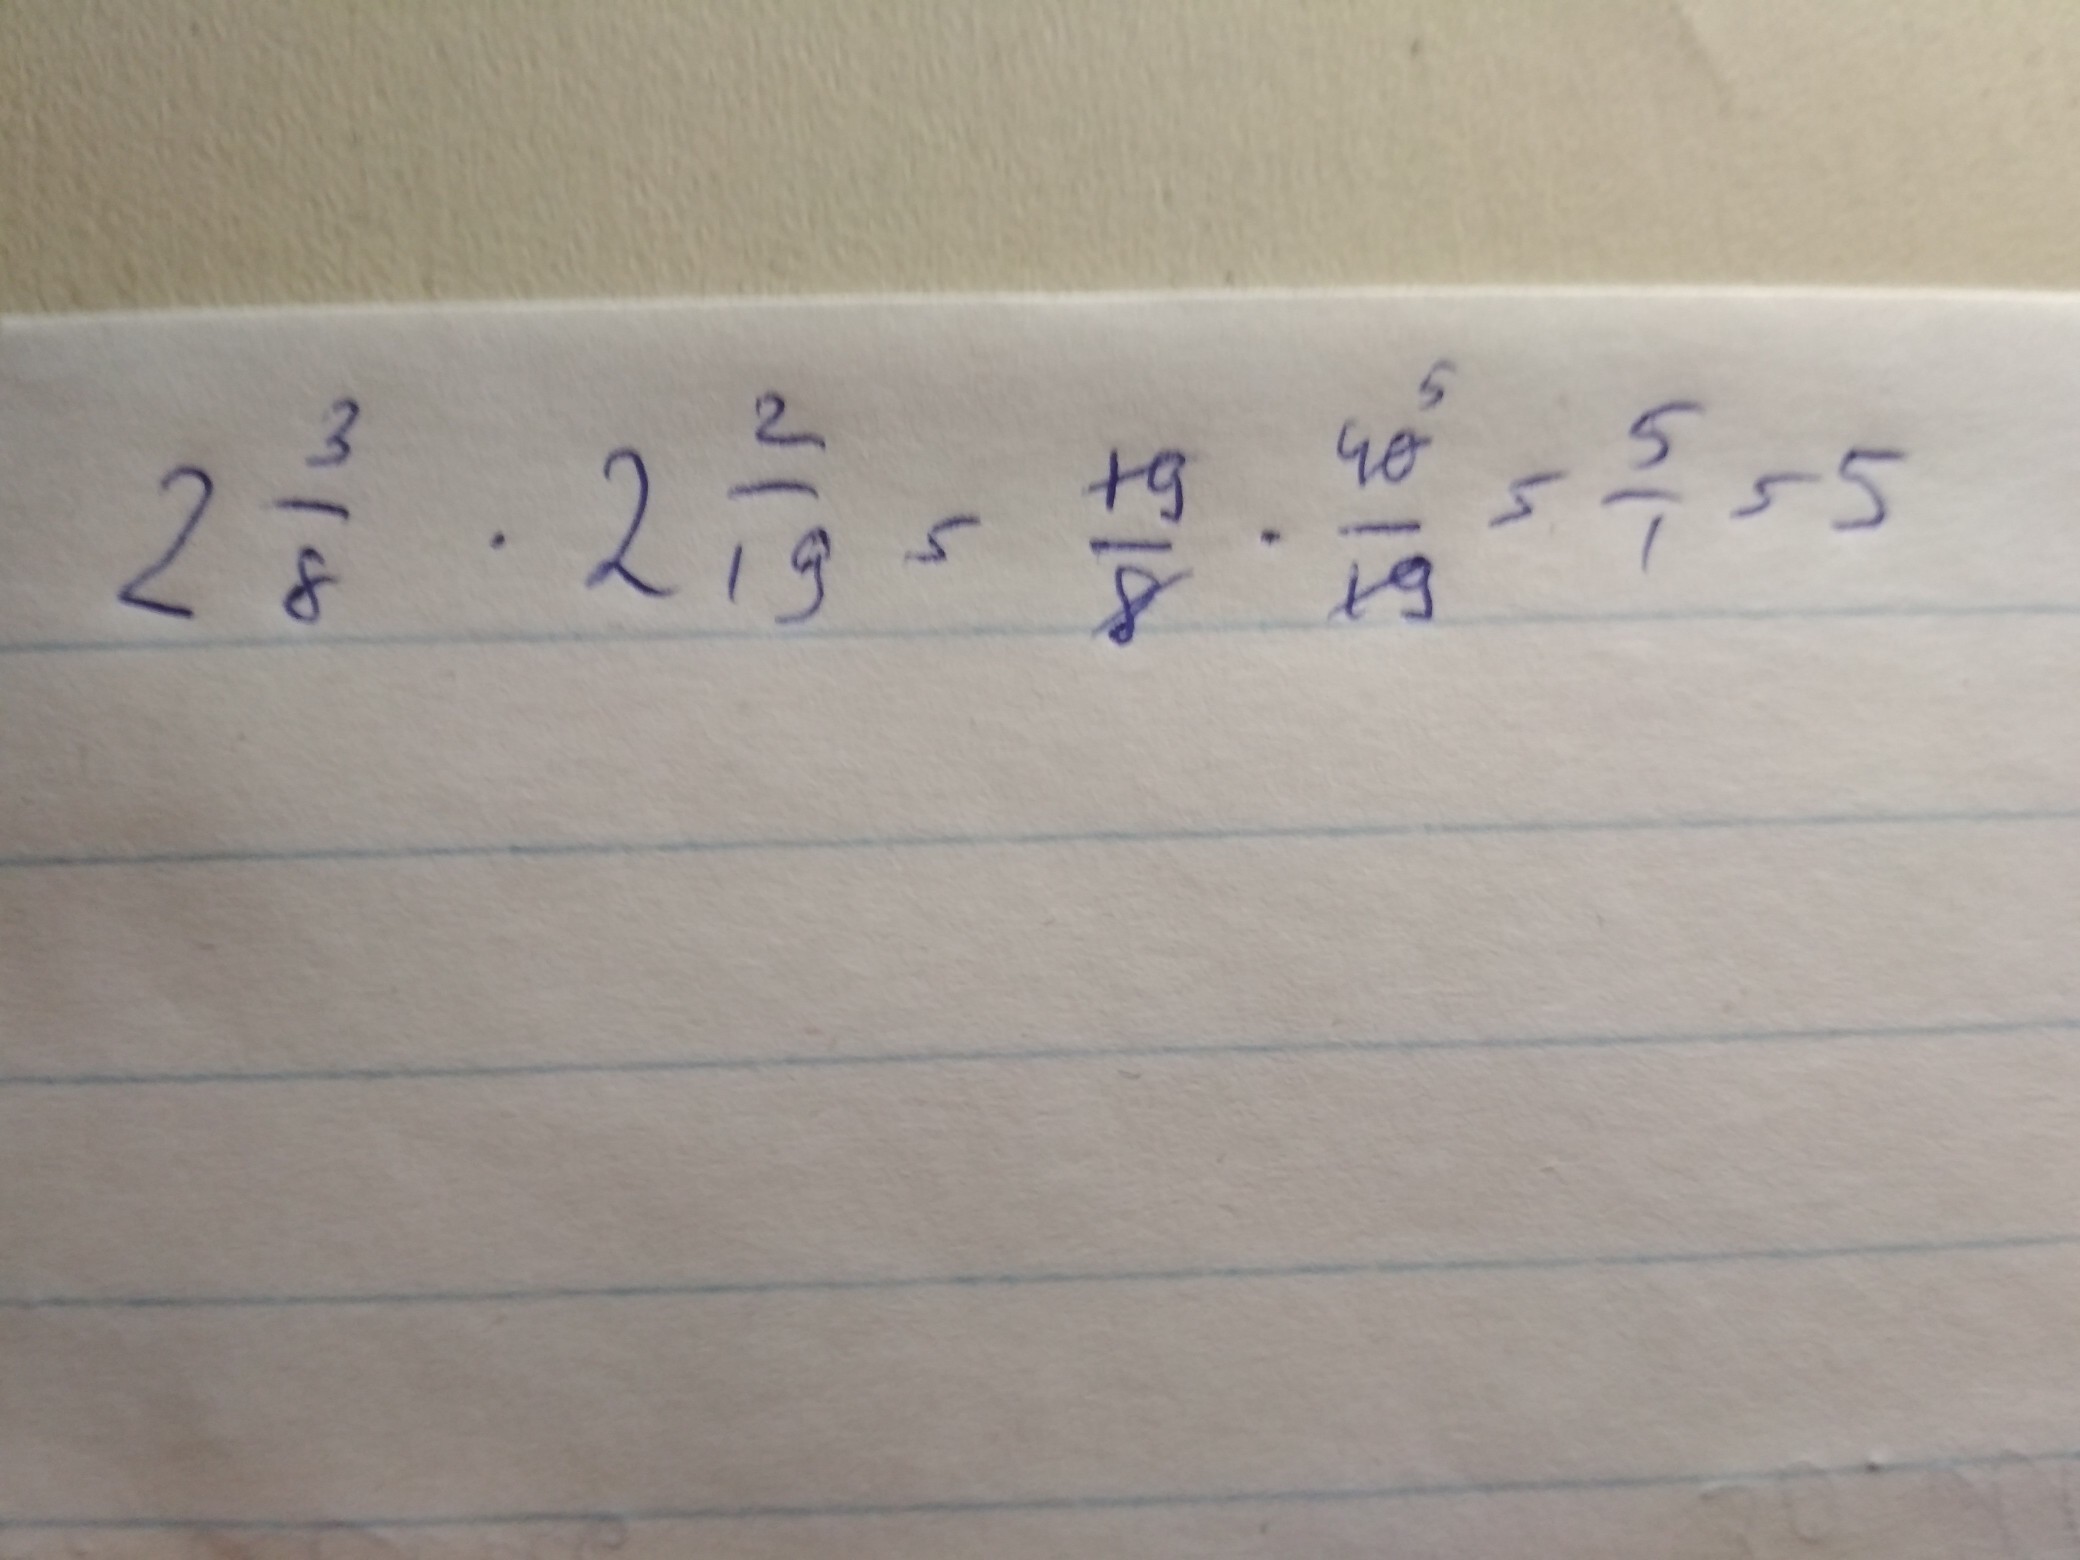 2 3/8 · 2 2/19 = 19/8 · 40/19 5 = 5/1 = 5